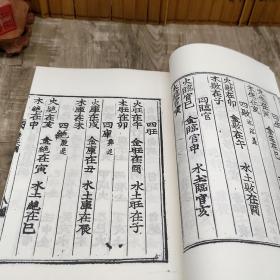 火敗在卯 金敗在午 水土敗在酉
木敗在子
四臨官
火臨官巳 金臨官申 水土臨官亥
四旺
火旺在午 金旺在酉 水土旺在子
木旺在卯
四庫
火庫在戌 金庫在丑 水土庫在辰
木庫在未
四絕
火絕在亥 金絕在寅 水土絕在巳
木絕在申